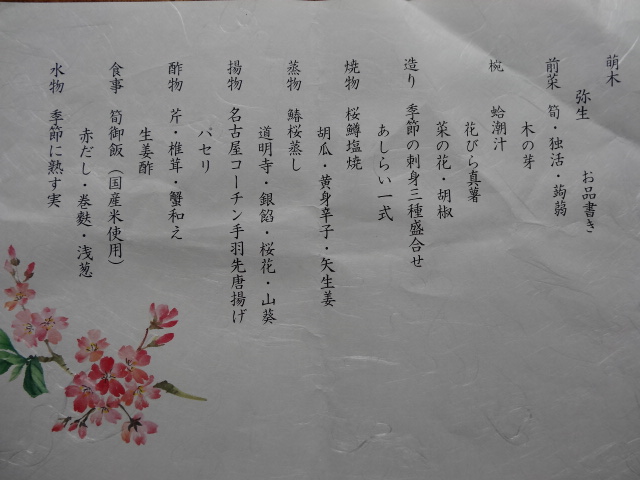 萌木
弥生　お品書き
前菜　筍・独活・蒟蒻
木の芽
椀　蛤潮汁
花びら真薯
菜の花・胡椒
造り　季節の刺身三種盛合せ
あしらい一式
焼物　桜鱒塩焼
胡瓜・黄身辛子・矢生姜
蒸物　鰆桜蒸し
道明寺・銀餡・桜花・山葵
揚物　名古屋コーチン手羽先唐揚げ
パセリ
酢物　芹・椎茸・蟹和え
生姜酢
食事　筍御飯（国産米使用）
赤だし・巻麩・浅葱
水物　季節に熟す実